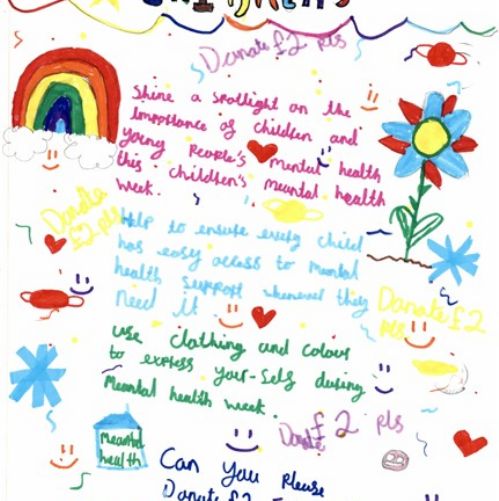 Donate £2 pls
Shine a spotlight on the
Importance of children and
young People's mental health
this children's meantal health
week.
Donate
£2 pls
Help to ensure every child
has easy access to mental
health support whenever they
need it.
Donate £2
pls
use clothing and colour
to express your-self during
Meantal health week.
Donate £2 pls
meantal
health
Can you please
Donate £2